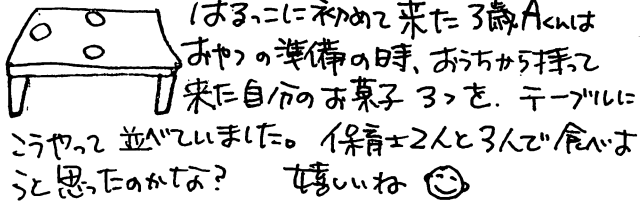 はるっこに初めて来た3歳Aくんは
おやつの準備の時、おうちから持って
来た自分のお菓子3つを、テーブルに
こうやって並べていました。保育士2人と3人で食べよ
うと思ったのかな? 嬉しいね